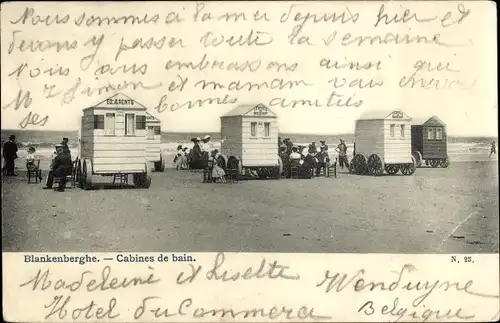 Nous sommes à la mer depuis hier et
devons y passer toute la semaine
Nous vous embrassons ainsi que
Mr Simon et maman vous envoi
ses bonnes amitiés
Blankenberghe. — Cabines de bain.
N. 25.
Madeleine et Lisette Wenduyne
Hotel du Commerce Belgique